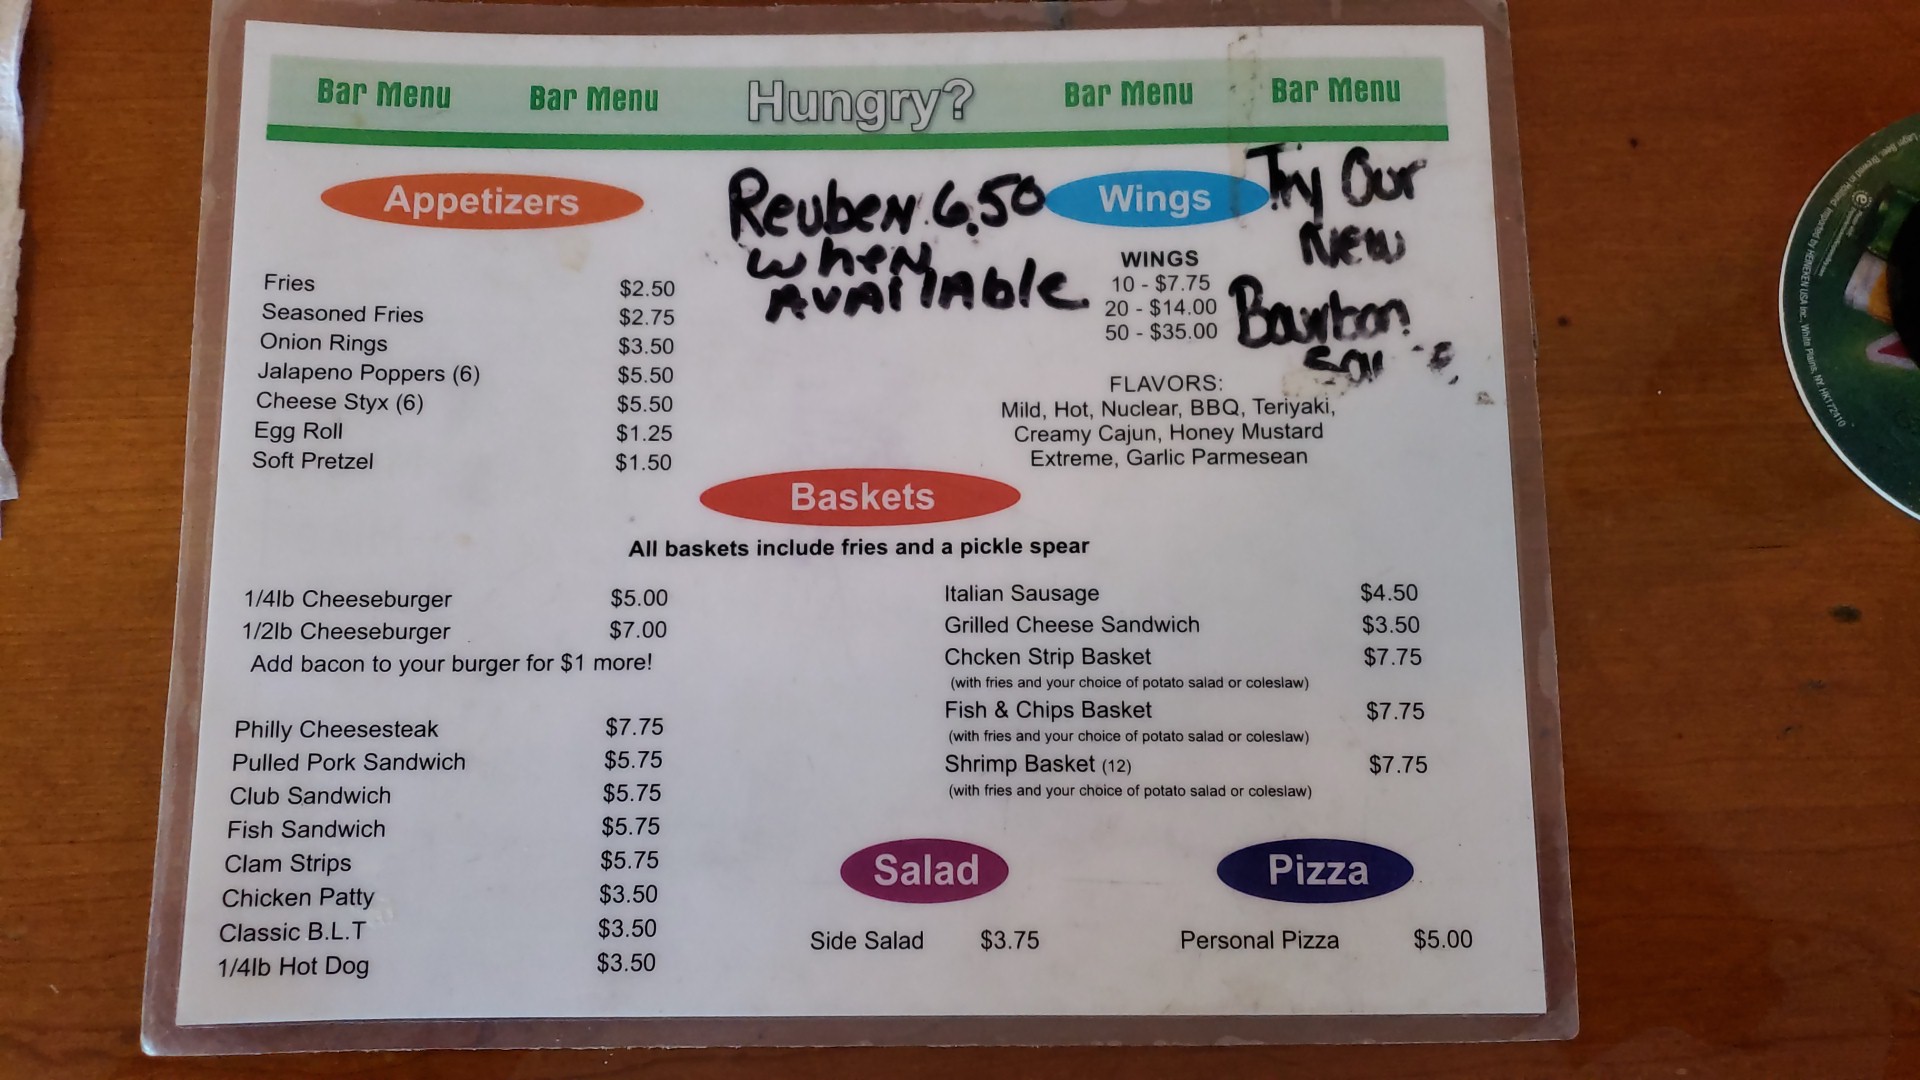 Bar Menu Bar Menu Hungry? Bar Menu Bar Menu
Appetizers
Fries $2.50
Seasoned Fries $2.75
Onion Rings $3.50
Jalapeno Poppers (6) $5.50
Cheese Styx (6) $5.50
Egg Roll $1.25
Soft Pretzel $1.50
Reuben 6.50
when
AVAilAble
Wings
WINGS
10 - $7.75
20 - $14.00
50 - $35.00
Try Our
New
Bourbon
FLAVORS:
Mild, Hot, Nuclear, BBQ, Teriyaki,
Creamy Cajun, Honey Mustard
Extreme, Garlic Parmesean
Baskets
All baskets include fries and a pickle spear
1/4lb Cheeseburger $5.00
1/2lb Cheeseburger $7.00
Add bacon to your burger for $1 more!
Philly Cheesesteak $7.75
Pulled Pork Sandwich $5.75
Club Sandwich $5.75
Fish Sandwich $5.75
Clam Strips $5.75
Chicken Patty $3.50
Classic B.L.T $3.50
1/4lb Hot Dog $3.50
Italian Sausage $4.50
Grilled Cheese Sandwich $3.50
Chcken Strip Basket $7.75
(with fries and your choice of potato salad or coleslaw)
Fish & Chips Basket $7.75
(with fries and your choice of potato salad or coleslaw)
Shrimp Basket (12) $7.75
(with fries and your choice of potato salad or coleslaw)
Salad
Side Salad $3.75
Pizza
Personal Pizza $5.00
Imported by HEINEKEN USA Inc., White Plains, NY. HK172410